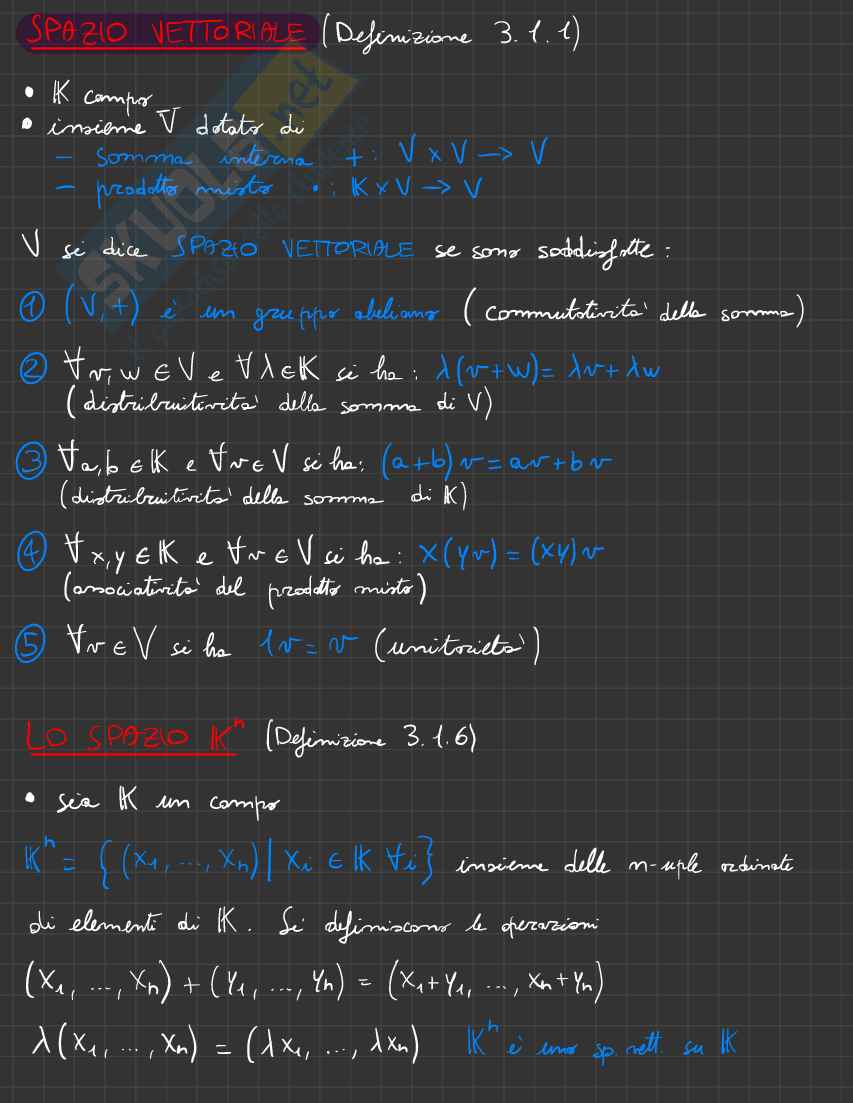 SPAZIO VETTORIALE (Definizione 3.1.1)
• K campo
• insieme V dotato di
– somma interna + : V × V → V
– prodotto misto • : K × V → V
V si dice SPAZIO VETTORIALE se sono soddisfatte :
① (V, +) è un gruppo abeliano (commutatività della somma)
② ∀v, w ∈ V e ∀λ ∈ K si ha : λ(v+w) = λv + λw
(distribuitività della somma di V)
③ ∀a, b ∈ K e ∀v ∈ V si ha: (a+b)v = av + bv
(distribuitività della somma di K)
④ ∀x, y ∈ K e ∀v ∈ V si ha : x(yv) = (xy)v
(associatività del prodotto misto)
⑤ ∀v ∈ V si ha 1v = v (unitarietà)
LO SPAZIO Kⁿ (Definizione 3.1.6)
• sia K un campo
Kⁿ = {(x₁, ..., xₙ) | xᵢ ∈ K ∀i} insieme delle n-uple ordinate
di elementi di K. Si definiscono le operazioni
(x₁, ..., xₙ) + (y₁, ..., yₙ) = (x₁+y₁, ..., xₙ+yₙ)
λ(x₁, ..., xₙ) = (λx₁, ..., λxₙ) Kⁿ è uno sp. vett. su K
SKUOLA.net